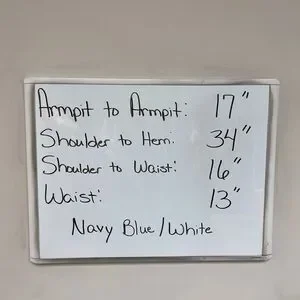 Armpit to Armpit: 17"
Shoulder to Hem: 34"
Shoulder to Waist: 16"
Waist: 13"
Navy Blue/White